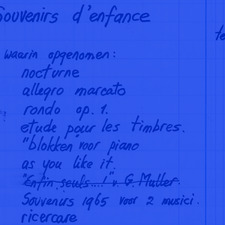 Souvenirs d'enfance
waarin opgenomen:
nocturne
allegro marcato
rondo op. 1.
etude pour les timbres.
"blokken" voor piano
as you like it.
"Enfin seuls...!" v. G. Muller.
Souvenirs 1965 voor 2 musici.
ricercare